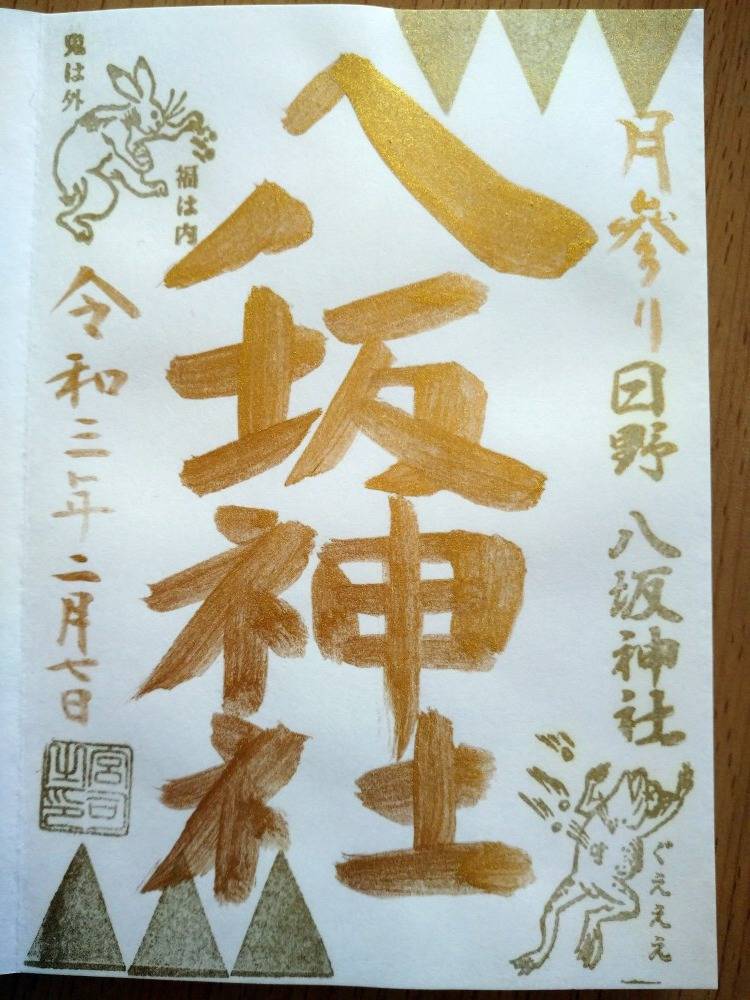 月参り
日野 八坂神社
八坂神社
鬼は外
福は内
令和三年二月七日
宮司之印
ぐえええ